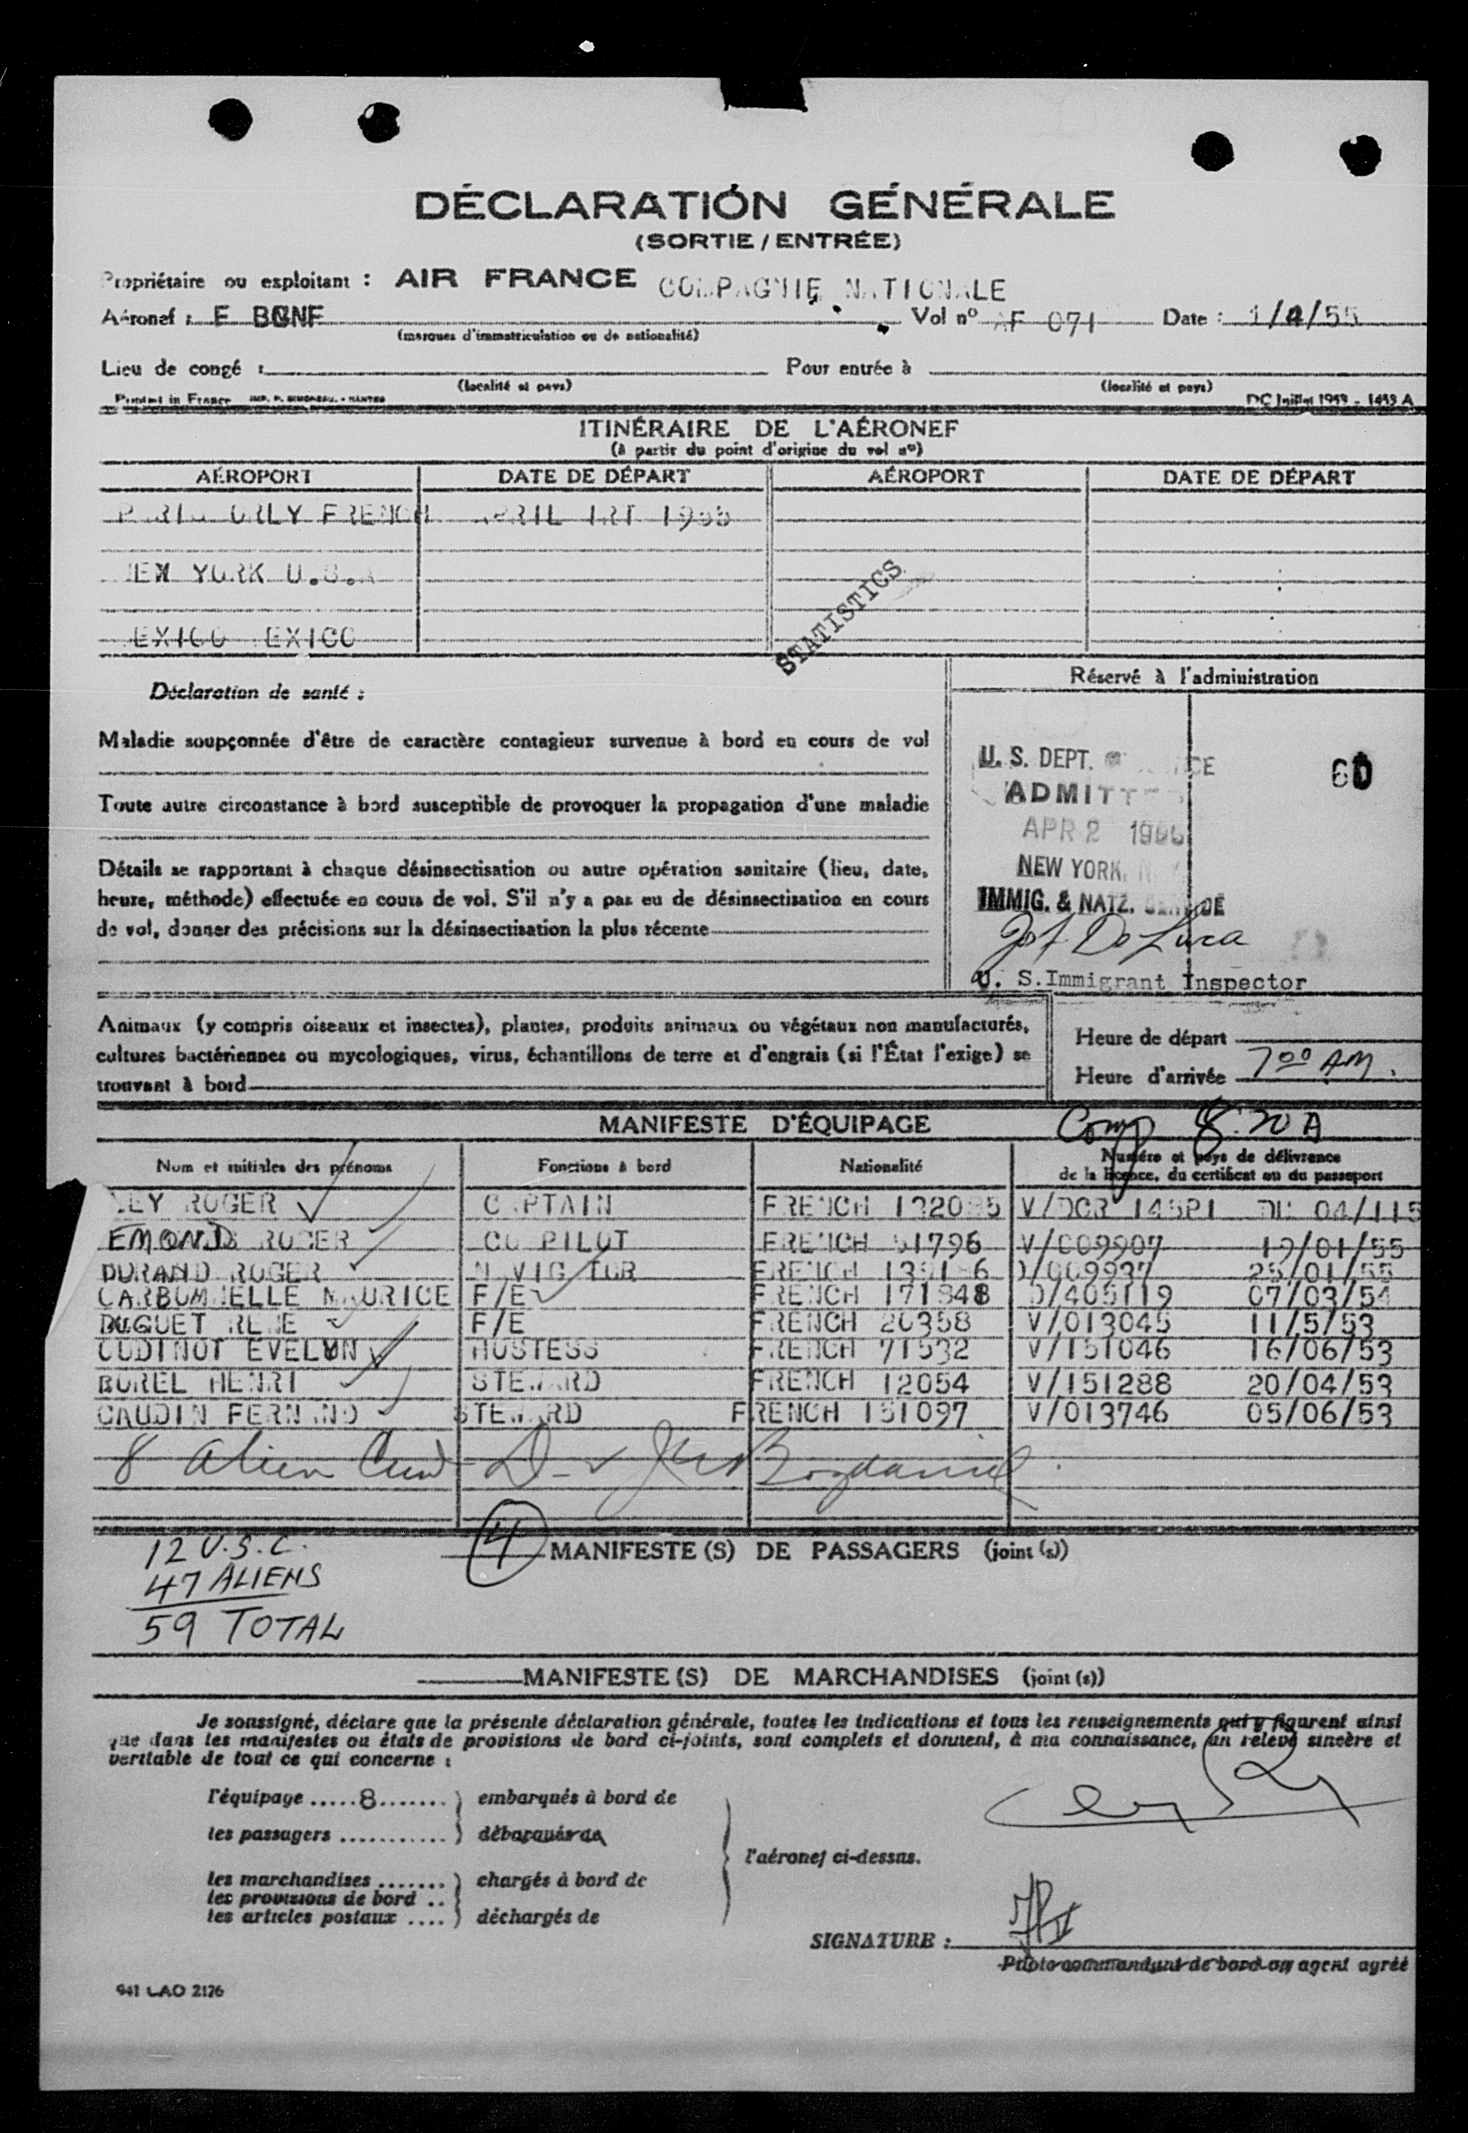 DÉCLARATION GÉNÉRALE
(SORTIE / ENTRÉE)
Propriétaire ou exploitant : AIR FRANCE COMPAGNIE NATIONALE
Aéronef : F BGNF Vol nº AF 071 Date : 1/4/55
(marques d'immatriculation ou de nationalité)
Lieu de congé : Pour entrée à
(localité et pays) (localité et pays)
Printed in France IMP. P. SIMONEAU. - NANTES DC Juillet 1953 - 1453 A
ITINÉRAIRE DE L'AÉRONEF
(à partir du point d'origine du vol nº)
AÉROPORT DATE DE DÉPART AÉROPORT DATE DE DÉPART
PARIS ORLY FRENCH APRIL 1RT 1955
NEW YORK U.S.A
MEXICO MEXICO
STATISTICS
Déclaration de santé : Réservé à l'administration
Maladie soupçonnée d'être de caractère contagieux survenue à bord en cours de vol
Toute autre circonstance à bord susceptible de provoquer la propagation d'une maladie
Détails se rapportant à chaque désinsectisation ou autre opération sanitaire (lieu, date,
heure, méthode) effectuée en cours de vol. S'il n'y a pas eu de désinsectisation en cours
de vol, donner des précisions sur la désinsectisation la plus récente
U. S. DEPT.
ADMITTED
APR 2 1955
NEW YORK, N.Y.
IMMIG. & NATZ. SERVICE
Jos. De Luca
U. S. Immigrant Inspector
60
Animaux (y compris oiseaux et insectes), plantes, produits animaux ou végétaux non manufacturés,
cultures bactériennes ou mycologiques, virus, échantillons de terre et d'engrais (si l'État l'exige) se
trouvant à bord
Heure de départ
Heure d'arrivée 7 00 AM.
MANIFESTE D'ÉQUIPAGE Comp 8:20 A
Nom et initiales des prénoms Fonctions à bord Nationalité Numéro et pays de délivrance
de la licence, du certificat ou du passeport
LEY ROGER CAPTAIN FRENCH V/DCR DU 04/115
EMOND ROGER CO PILOT FRENCH 51796 V/009907 19/01/55
DURAND ROGER NAVIGATOR FRENCH D/009937 25/01/55
CARBONNELLE MAURICE F/E FRENCH 171848 D/405119 07/03/54
DUGUET RENE F/E FRENCH 20358 V/013045 11/5/53
OUDINOT EVELYN HOSTESS FRENCH 71532 V/151046 16/06/53
BOREL HENRI STEWARD FRENCH 12054 V/151288 20/04/53
GAUDIN FERNAND STEWARD FRENCH 151097 V/013746 05/06/53
8 Alien Crew
4 MANIFESTE (S) DE PASSAGERS (joint (s))
12 U.S.C.
47 ALIENS
59 TOTAL
MANIFESTE (S) DE MARCHANDISES (joint (s))
Je soussigné, déclare que la présente déclaration générale, toutes les indications et tous les renseignements qui y figurent ainsi
que dans les manifestes ou états de provisions de bord ci-joints, sont complets et donnent, à ma connaissance, un relevé sincère et
véritable de tout ce qui concerne :
l'équipage .....8....... ) embarqués à bord de
les passagers ........... ) débarqués de
l'aéronef ci-dessus.
les marchandises ....... ) chargés à bord de
les provisions de bord .. )
les articles postaux .... ) déchargés de
SIGNATURE :
Pilote commandant de bord ou agent agréé
941 LAO 2126